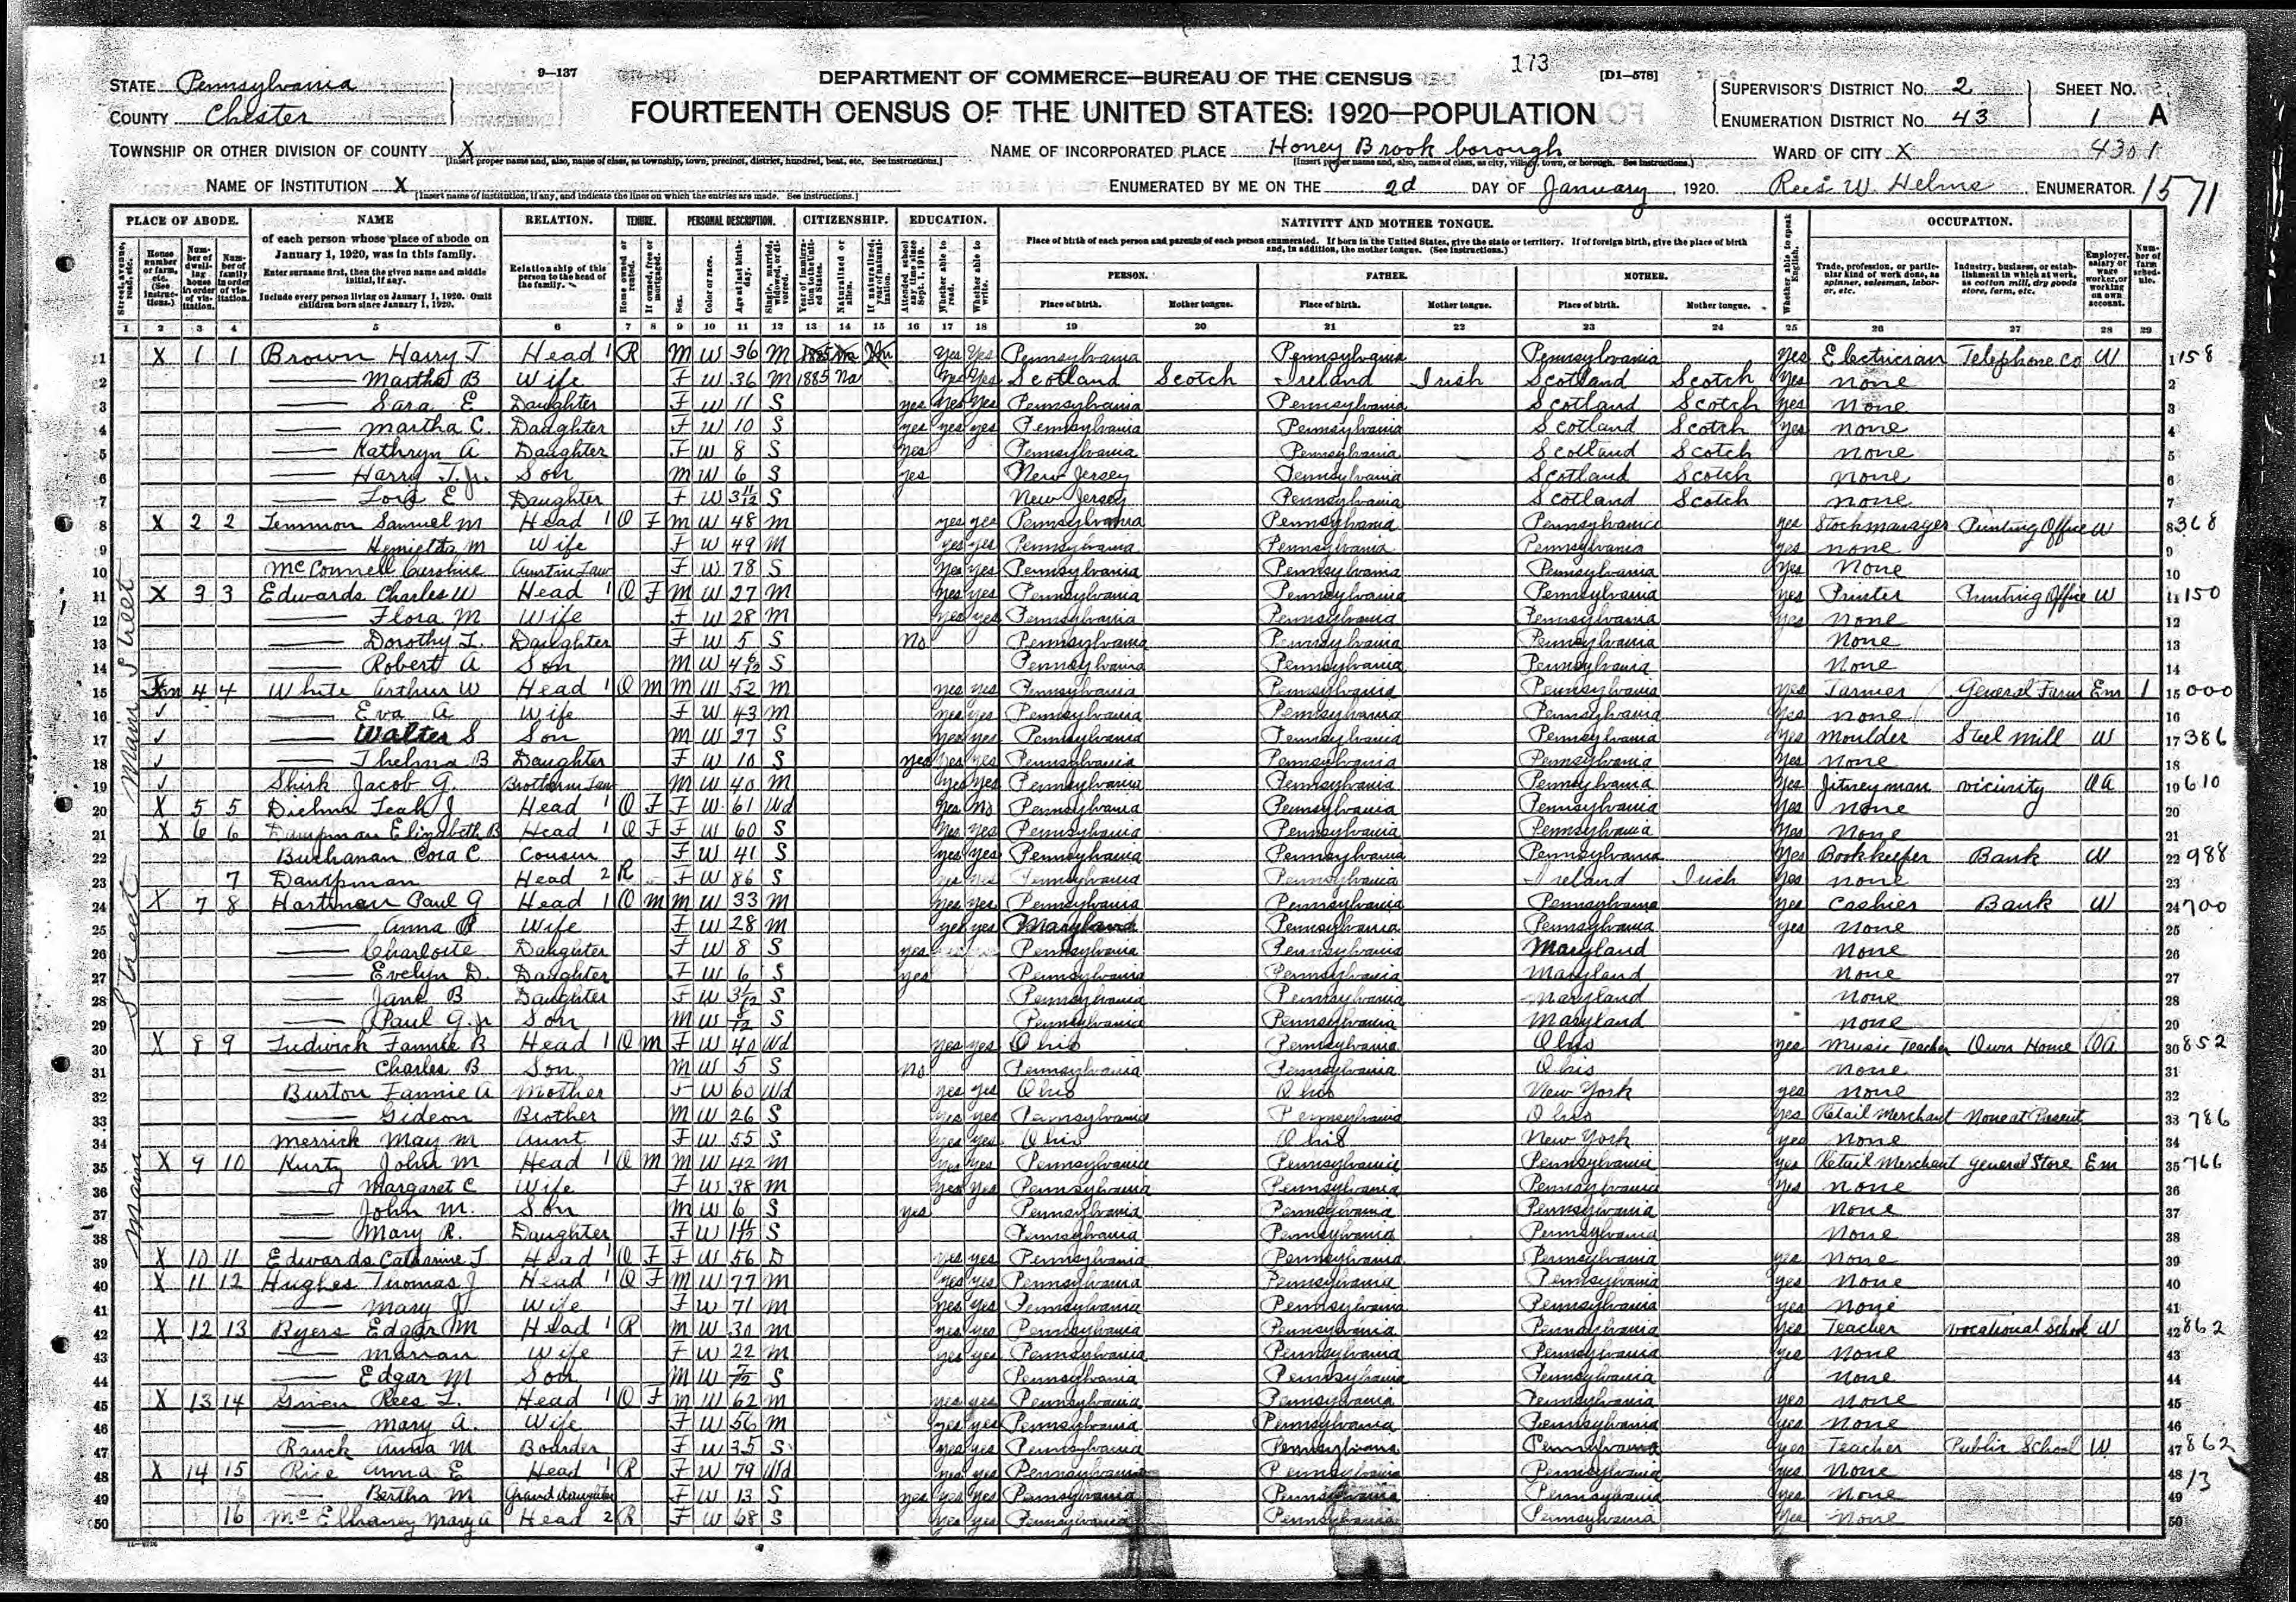 173
STATE Pennsylvania
9—137
DEPARTMENT OF COMMERCE—BUREAU OF THE CENSUS
[D1—578]
COUNTY Chester
FOURTEENTH CENSUS OF THE UNITED STATES: 1920—POPULATION
SUPERVISOR'S DISTRICT NO. 2 SHEET NO.
ENUMERATION DISTRICT NO. 43 1 A
TOWNSHIP OR OTHER DIVISION OF COUNTY X NAME OF INCORPORATED PLACE Honey Brook borough WARD OF CITY X 4301
[Insert proper name and, also, name of class, as township, town, precinct, district, hundred, beat, etc. See instructions.] [Insert proper name and, also, name of class, as city, village, town, or borough. See instructions.]
NAME OF INSTITUTION X ENUMERATED BY ME ON THE 2d DAY OF January, 1920. Rees W. Helms ENUMERATOR. 1571
[Insert name of institution, if any, and indicate the lines on which the entries are made. See instructions.]
PLACE OF ABODE. NAME RELATION. TENURE. PERSONAL DESCRIPTION. CITIZENSHIP. EDUCATION. NATIVITY AND MOTHER TONGUE. OCCUPATION.
of each person whose place of abode on January 1, 1920, was in this family.
Enter surname first, then the given name and middle initial, if any.
Include every person living on January 1, 1920. Omit children born since January 1, 1920.
Relationship of this person to the head of the family.
Place of birth of each person and parents of each person enumerated. If born in the United States, give the state or territory. If of foreign birth, give the place of birth and, in addition, the mother tongue. (See instructions.)
PERSON. FATHER. MOTHER.
Place of birth. Mother tongue. Place of birth. Mother tongue. Place of birth. Mother tongue.
1 2 3 4 5 6 7 8 9 10 11 12 13 14 15 16 17 18 19 20 21 22 23 24 25 26 27 28 29
Main Street
1 X 1 1 Brown Harry T Head 1 R M W 36 M 1885 Na Yes Yes Pennsylvania Pennsylvania Pennsylvania Yes Electrician Telephone Co W 1 158
2 Martha B Wife F W 36 M 1885 Na Yes Yes Scotland Scotch Ireland Irish Scotland Scotch Yes none 2
3 Sara E Daughter F W 11 S yes Yes Yes Pennsylvania Pennsylvania Scotland Scotch Yes None 3
4 Martha C. Daughter F W 10 S yes yes yes Pennsylvania Pennsylvania Scotland Scotch Yes none 4
5 Kathryn A Daughter F W 8 S Yes Pennsylvania Pennsylvania Scotland Scotch none 5
6 Harry T. Jr. Son M W 6 S yes New Jersey Pennsylvania Scotland Scotch none 6
7 Lois E Daughter F W 3 11/12 S New Jersey Pennsylvania Scotland Scotch none 7
8 X 2 2 Lemmon Samuel M Head 1 O F M W 48 M yes yes Pennsylvania Pennsylvania Pennsylvania yes Stockmanager Printing Office W 8 368
9 Henietta M Wife F W 49 M yes yes Pennsylvania Pennsylvania Pennsylvania yes none 9
10 McConnell Caroline Aunt in Law F W 78 S Yes yes Pennsylvania Pennsylvania Pennsylvania Yes None 10
11 X 3 3 Edwards Charles W Head 1 O F M W 27 M Yes yes Pennsylvania Pennsylvania Pennsylvania Yes Printer Printing Office W 11 150
12 Flora M Wife F W 28 M yes yes Pennsylvania Pennsylvania Pennsylvania Yes None 12
13 Dorothy L. Daughter F W 5 S No Pennsylvania Pennsylvania Pennsylvania None 13
14 Robert A Son M W S Pennsylvania Pennsylvania Pennsylvania None 14
15 Fm 4 4 White Arthur W Head 1 O M M W 52 M yes yes Pennsylvania Pennsylvania Pennsylvania yes Farmer General Farm Em 1 15 000
16 ✓ Eva A Wife F W 43 M Yes Yes Pennsylvania Pennsylvania Pennsylvania Yes none 16
17 ✓ Walter S Son M W 27 S Yes yes Pennsylvania Pennsylvania Pennsylvania Yes Moulder Steel Mill W 17 386
18 ✓ Thelma B Daughter F W 10 S yes yes yes Pennsylvania Pennsylvania Pennsylvania Yes None 18
19 ✓ Shirk Jacob G. Brother in Law M W 40 M Yes Yes Pennsylvania Pennsylvania Pennsylvania Yes Jitneyman vicinity OA 19 610
20 X 5 5 Leah J Head 1 O F F W 61 Wd Yes No Pennsylvania Pennsylvania Pennsylvania Yes none 20
21 X 6 6 Dampman Elizabeth B Head 1 O F F W 60 S Yes Yes Pennsylvania Pennsylvania Pennsylvania Yes None 21
22 Buchanan Cora C Cousin F W 41 S yes yes Pennsylvania Pennsylvania Pennsylvania Yes Bookkeeper Bank W 22 988
23 7 Dampman Head 2 R F W 86 S yes yes Pennsylvania Pennsylvania Ireland Irish Yes none 23
24 X 7 8 Hartman Paul G Head 1 O M M W 33 M Yes Yes Pennsylvania Pennsylvania Pennsylvania Yes Cashier Bank W 24 700
25 Anna R Wife F W 28 M yes yes Maryland Pennsylvania Pennsylvania yes None 25
26 Charlotte Daughter F W 8 S yes Pennsylvania Pennsylvania Maryland None 26
27 Evelyn D. Daughter F W 6 S yes Pennsylvania Pennsylvania Maryland None 27
28 Jane B Daughter F W S Pennsylvania Pennsylvania Maryland None 28
29 Paul G. Jr Son M W S Pennsylvania Pennsylvania Maryland none 29
30 X 8 9 Ludwick Fannie B Head 1 O M F W 40 Wd yes yes Ohio Pennsylvania Ohio yes Music Teacher Own Home OA 30 852
31 Charles B Son M W 5 S No Pennsylvania Pennsylvania Ohio None 31
32 Burton Fannie A Mother F W 60 Wd yes yes Ohio Ohio New York yes none 32
33 Gideon Brother M W 26 S Yes yes Pennsylvania Pennsylvania Ohio yes Retail Merchant None at Present 33 786
34 Merrick May M Aunt F W 55 S yes yes Ohio Ohio New York yes none 34
35 X 9 10 Kurtz John M Head 1 O M M W 42 M Yes Yes Pennsylvania Pennsylvania Pennsylvania yes Retail Merchant General Store Em 35 766
36 Margaret C Wife F W 38 M Yes Yes Pennsylvania Pennsylvania Pennsylvania Yes none 36
37 John M. Son M W 6 S yes Pennsylvania Pennsylvania Pennsylvania None 37
38 Mary R. Daughter F W S Pennsylvania Pennsylvania Pennsylvania None 38
39 X 10 11 Edwards Catharine J Head 1 O F F W 56 D yes yes Pennsylvania Pennsylvania Pennsylvania yes none 39
40 X 11 12 Hughes Thomas J Head 1 O F M W 77 M yes yes Pennsylvania Pennsylvania Pennsylvania yes None 40
41 Mary J Wife F W 71 M Yes yes Pennsylvania Pennsylvania Pennsylvania yes none 41
42 X 12 13 Byers Edgar M Head 1 R M W 30 M yes yes Pennsylvania Pennsylvania Pennsylvania Yes Teacher Vocational School W 42 862
43 Marian Wife F W 22 M yes yes Pennsylvania Pennsylvania Pennsylvania yes None 43
44 Edgar M Son M W 7/12 S Pennsylvania Pennsylvania Pennsylvania none 44
45 X 13 14 Given Rees L. Head 1 O F M W 62 M yes yes Pennsylvania Pennsylvania Pennsylvania yes none 45
46 Mary A. Wife F W 56 M yes yes Pennsylvania Pennsylvania Pennsylvania yes none 46
47 Ranck Anna M Boarder F W 35 S Yes yes Pennsylvania Pennsylvania Pennsylvania yes Teacher Public School W 47 862
48 X 14 15 Rice Anna E Head 1 R F W 79 Wd Yes yes Pennsylvania Pennsylvania Pennsylvania yes None 48 13
49 Bertha M Grand daughter F W 13 S yes Yes Yes Pennsylvania Pennsylvania Pennsylvania yes None 49
50 16 Mary A Head 2 R F W 68 S Yes yes Pennsylvania Pennsylvania Pennsylvania Yes None 50